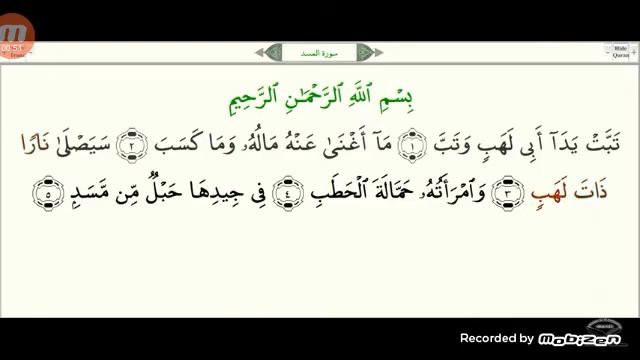 00:51
سورة المسد
Hide
Quran
بِسْمِ ٱللَّهِ ٱلرَّحْمَـٰنِ ٱلرَّحِيمِ
تَبَّتْ يَدَآ أَبِى لَهَبٍ وَتَبَّ ١ مَآ أَغْنَىٰ عَنْهُ مَالُهُۥ وَمَا كَسَبَ ٢ سَيَصْلَىٰ نَارًا
ذَاتَ لَهَبٍ ٣ وَٱمْرَأَتُهُۥ حَمَّالَةَ ٱلْحَطَبِ ٤ فِى جِيدِهَا حَبْلٌ مِّن مَّسَدٍ ٥
Recorded by Mobizen